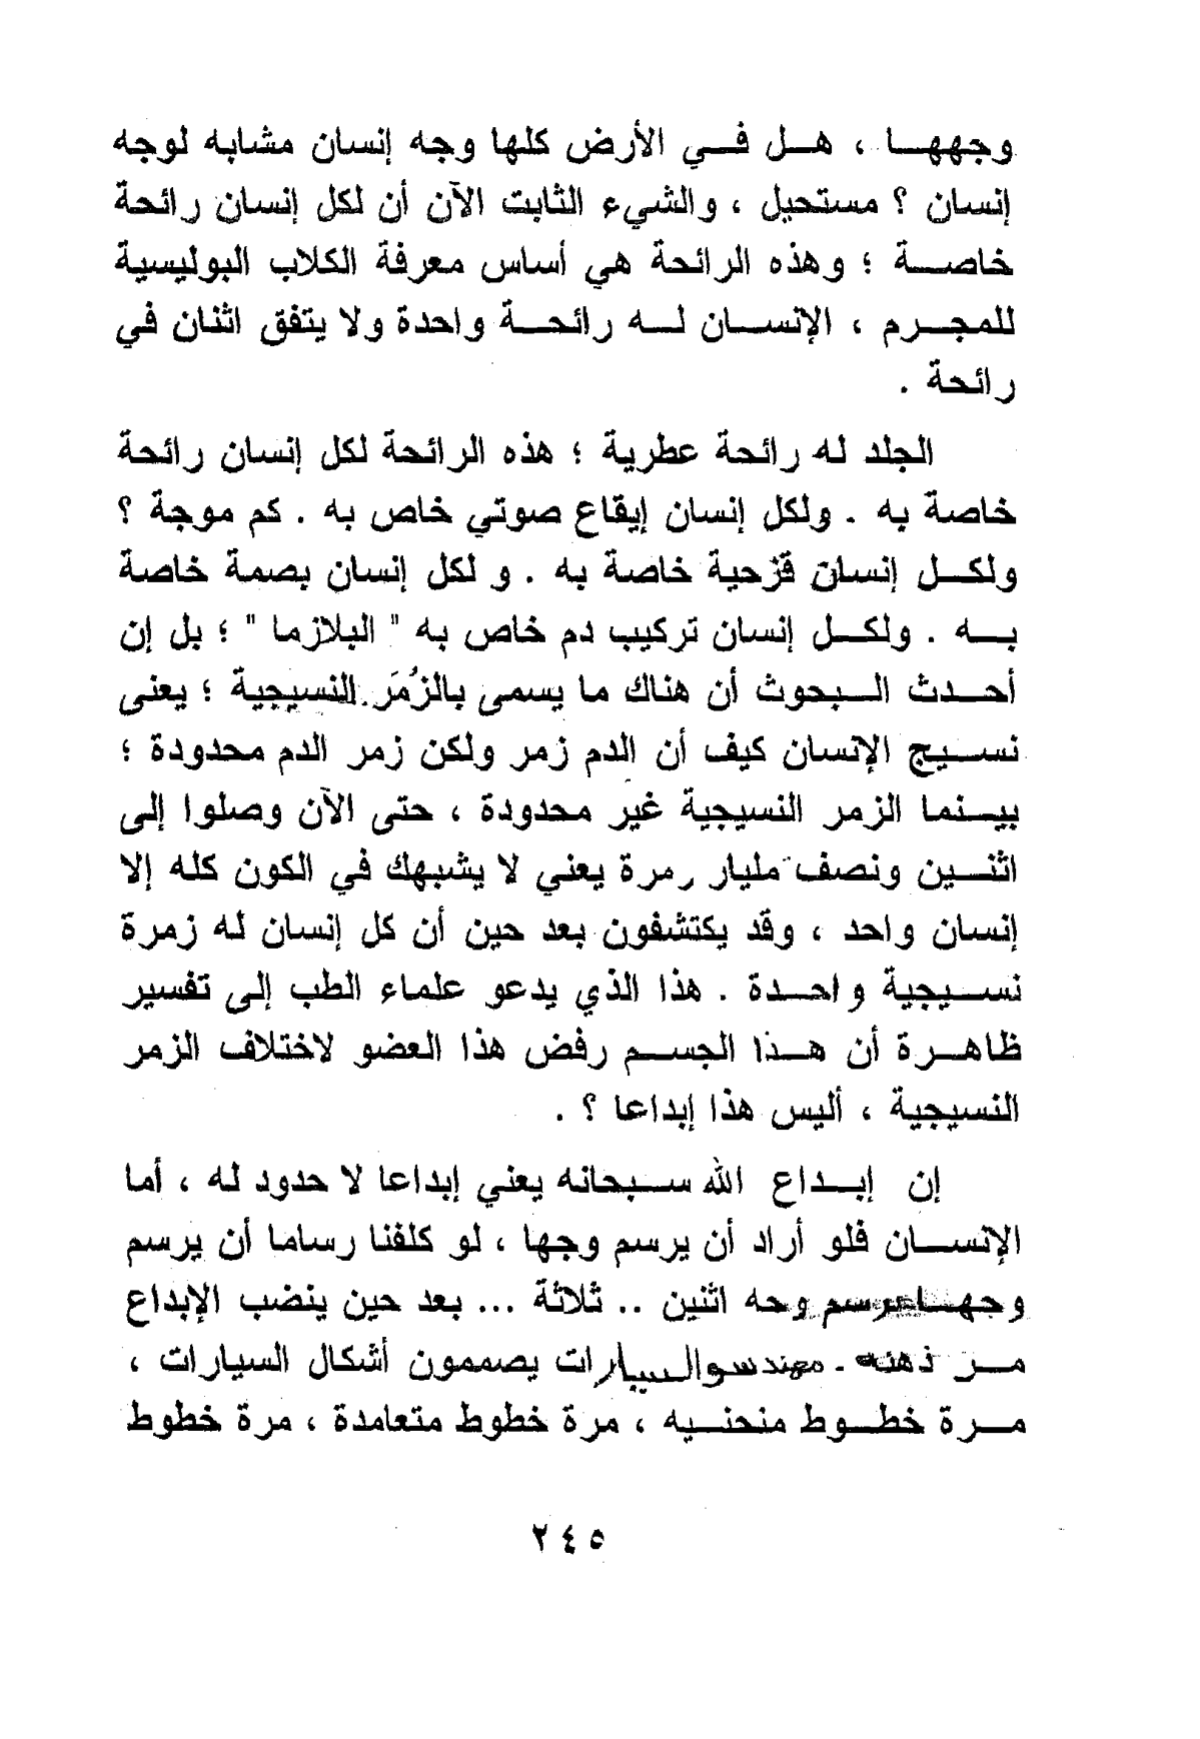 وجهها ، هل في الأرض كلها وجه إنسان مشابه لوجه
إنسان ؟ مستحيل ، والشيء الثابت الآن أن لكل إنسان رائحة
خاصة ؛ وهذه الرائحة هي أساس معرفة الكلاب البوليسية
للمجرم ، الإنسان له رائحة واحدة ولا يتفق اثنان في
رائحة .
الجلد له رائحة عطرية ؛ هذه الرائحة لكل إنسان رائحة
خاصة به . ولكل إنسان إيقاع صوتي خاص به . كم موجة ؟
ولكل إنسان قزحية خاصة به . و لكل إنسان بصمة خاصة
به . ولكل إنسان تركيب دم خاص به " البلازما " ؛ بل إن
أحدث البحوث أن هناك ما يسمى بالزُمَر النسيجية ؛ يعنى
نسيج الإنسان كيف أن الدم زمر ولكن زمر الدم محدودة ؛
بينما الزمر النسيجية غير محدودة ، حتى الآن وصلوا إلى
اثنين ونصف مليار زمرة يعني لا يشبهك في الكون كله إلا
إنسان واحد ، وقد يكتشفون بعد حين أن كل إنسان له زمرة
نسيجية واحدة . هذا الذي يدعو علماء الطب إلى تفسير
ظاهرة أن هذا الجسم رفض هذا العضو لاختلاف الزمر
النسيجية ، أليس هذا إبداعا ؟ .
إن إبداع الله سبحانه يعني إبداعا لا حدود له ، أما
الإنسان فلو أراد أن يرسم وجها ، لو كلفنا رساما أن يرسم
وجها يرسم وجه اثنين .. ثلاثة ... بعد حين ينضب الإبداع
من ذهنه . مهندسو السيارات يصممون أشكال السيارات ،
مرة خطوط منحنيه ، مرة خطوط متعامدة ، مرة خطوط
٢٤٥